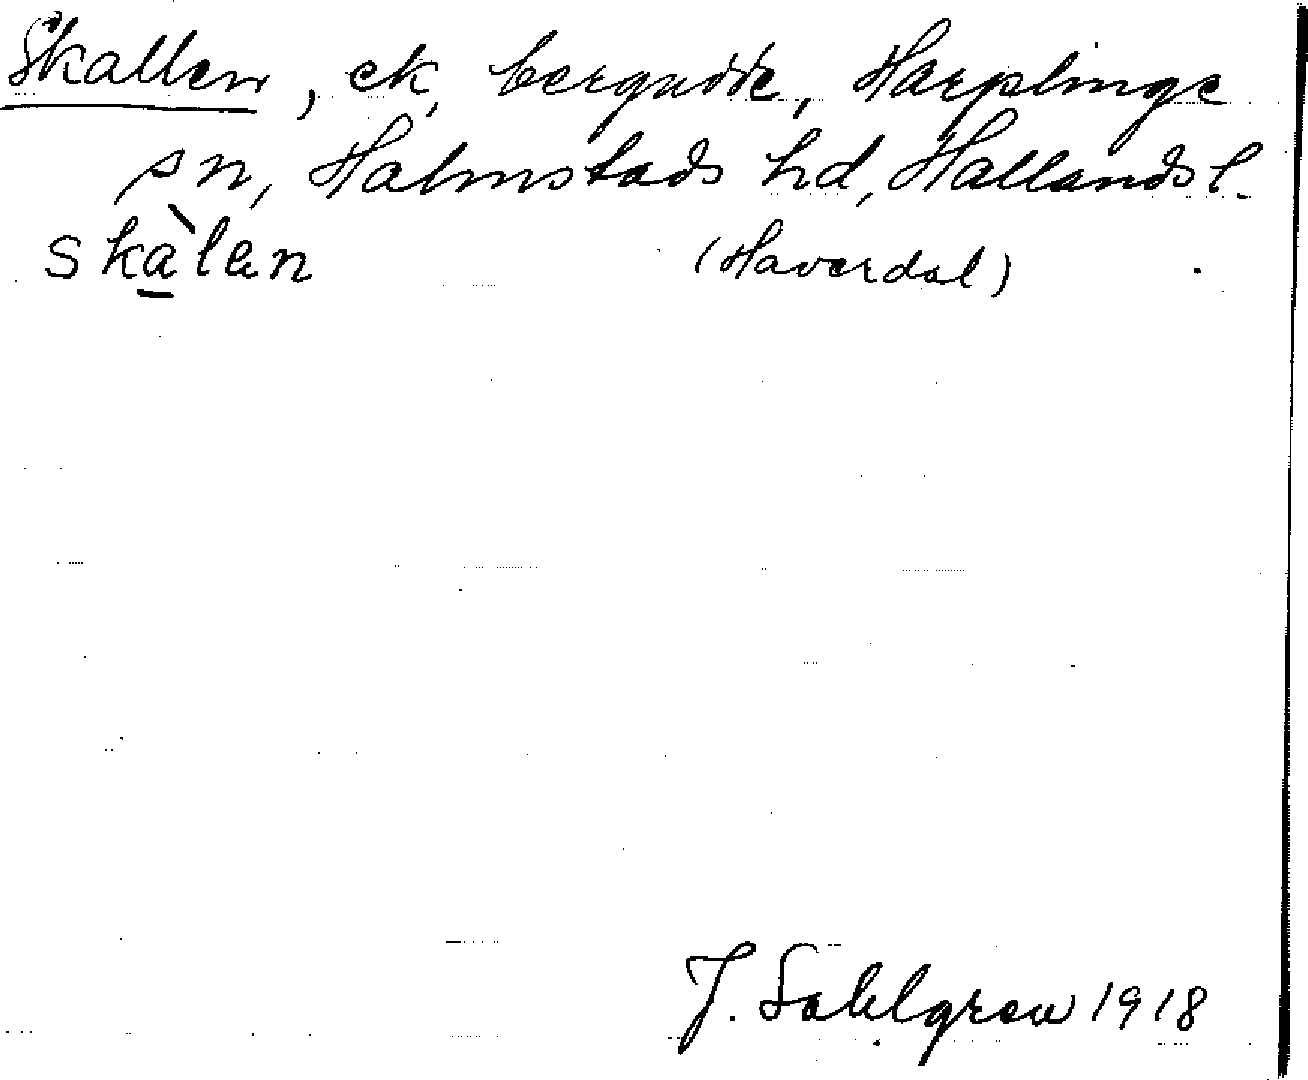 Skallen, ck, bergudde, Harplinge
sn, Halmstads hd, Hallands l.
skàlen (Haverdal)
J. Sahlgren 1918